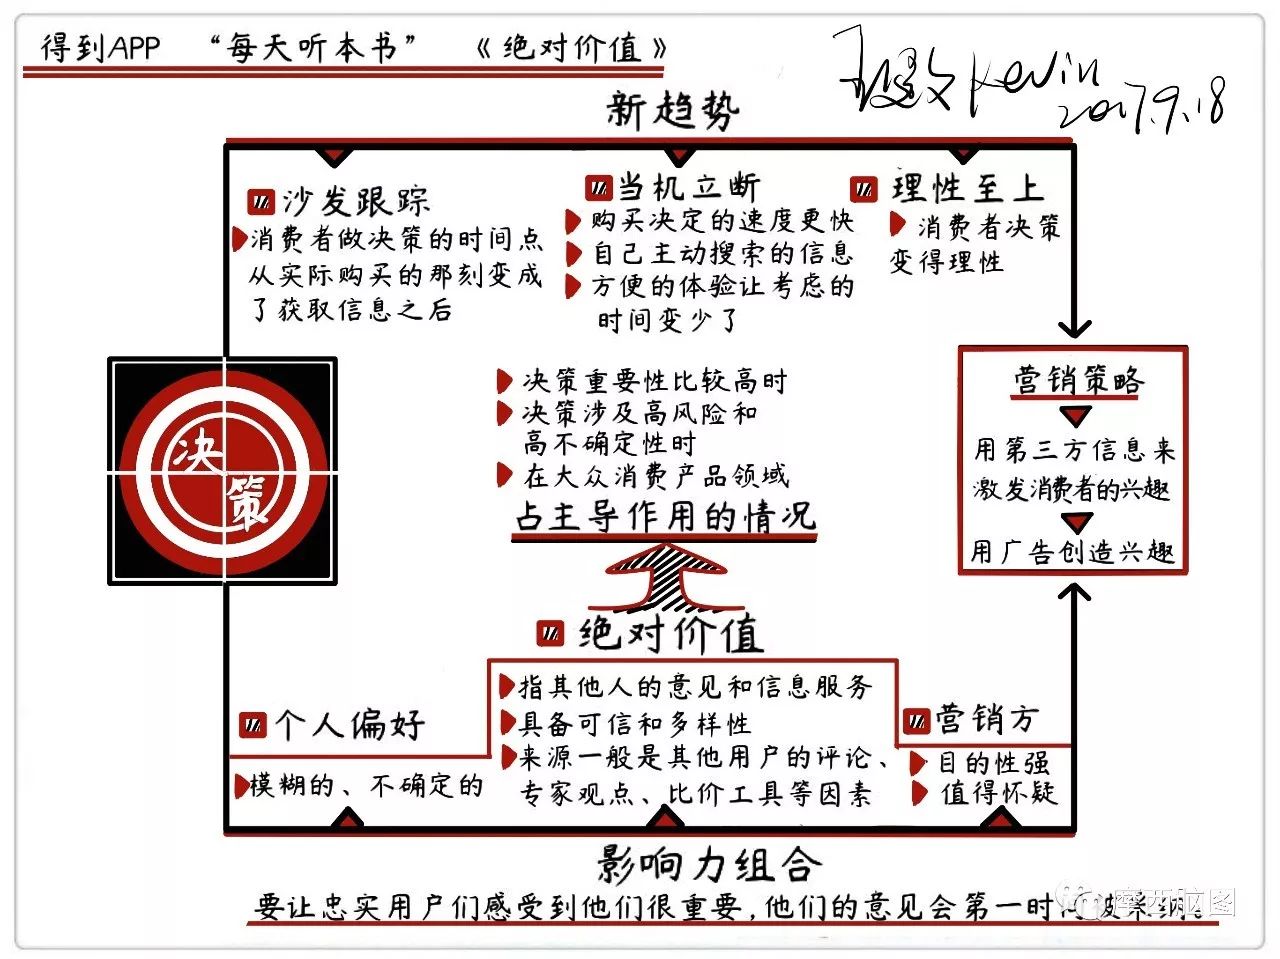 得到APP “每天听本书” 《绝对价值》
Kevin
2017.9.18
新趋势
沙发跟踪
消费者做决策的时间点
从实际购买的那刻变成
了获取信息之后
当机立断
购买决定的速度更快
自己主动搜索的信息
方便的体验让考虑的
时间变少了
理性至上
消费者决策
变得理性
决策
决策重要性比较高时
决策涉及高风险和
高不确定性时
在大众消费产品领域
占主导作用的情况
营销策略
用第三方信息来
激发消费者的兴趣
用广告创造兴趣
绝对价值
指其他人的意见和信息服务
具备可信和多样性
来源一般是其他用户的评论、
专家观点、比价工具等因素
个人偏好
模糊的、不确定的
营销方
目的性强
值得怀疑
影响力组合
要让忠实用户们感受到他们很重要,他们的意见会第一时间被采纳。
摩西脑图